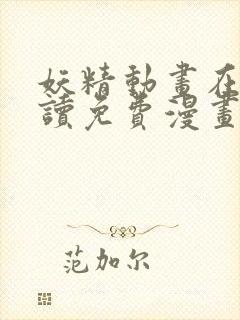 妖精動畫在
讀免費漫畫
范加尔